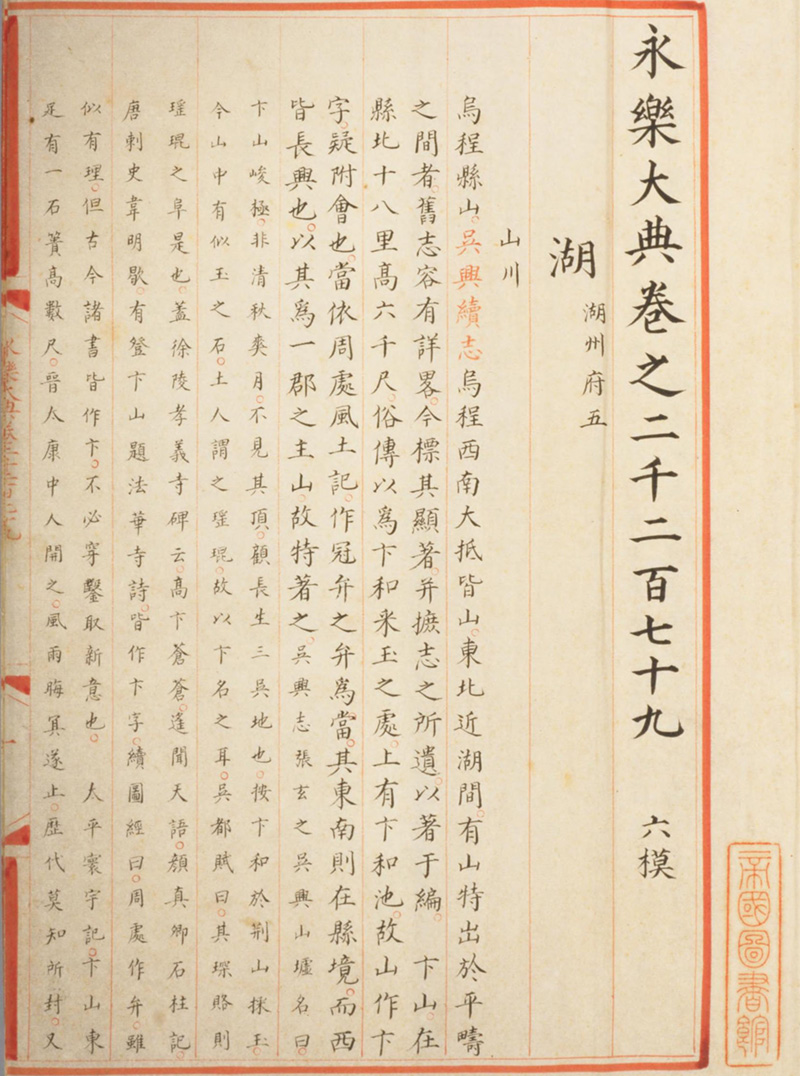 帝國圖書館
永樂大典卷之二千二百七十九　六模
湖　湖州府五
山川
烏程縣山。吳興續志烏程西南大抵皆山。東北近湖間。有山特出於平疇
之間者。舊志容有詳畧。今標其顯著。并摭志之所遺。以著于編。　卞山。在
縣北十八里高六千尺。俗傳以爲卞和采玉之處。上有卞和池。故山作卞
字。疑附會也。當依周處風土記。作冠弁之弁爲當。其東南則在縣境。而西
皆長興也。以其爲一郡之主山。故特著之。吳興志張玄之吳興山墟名曰。
卞山峻極。非清秋爽月。不見其頂。顧長生三吳地也。按卞和於荆山採玉。
今山中有似玉之石。土人謂之瑤琨。故以卞名之耳。吳都賦曰。其琛賂則
瑤琨之阜是也。蓋徐陵孝義寺碑云。高卞蒼蒼。遙聞天語。顔真卿石柱記。
唐刺史韋明歇。有登卞山題法華寺詩。皆作卞字。續圖經曰。周處作弁。雖
似有理。但古今諸書皆作卞。不必穿鑿取新意也。　太平寰宇記。卞山東
足有一石簣高數尺。晉太康中人開之。風雨晦冥遂止。歷代莫知所封。又